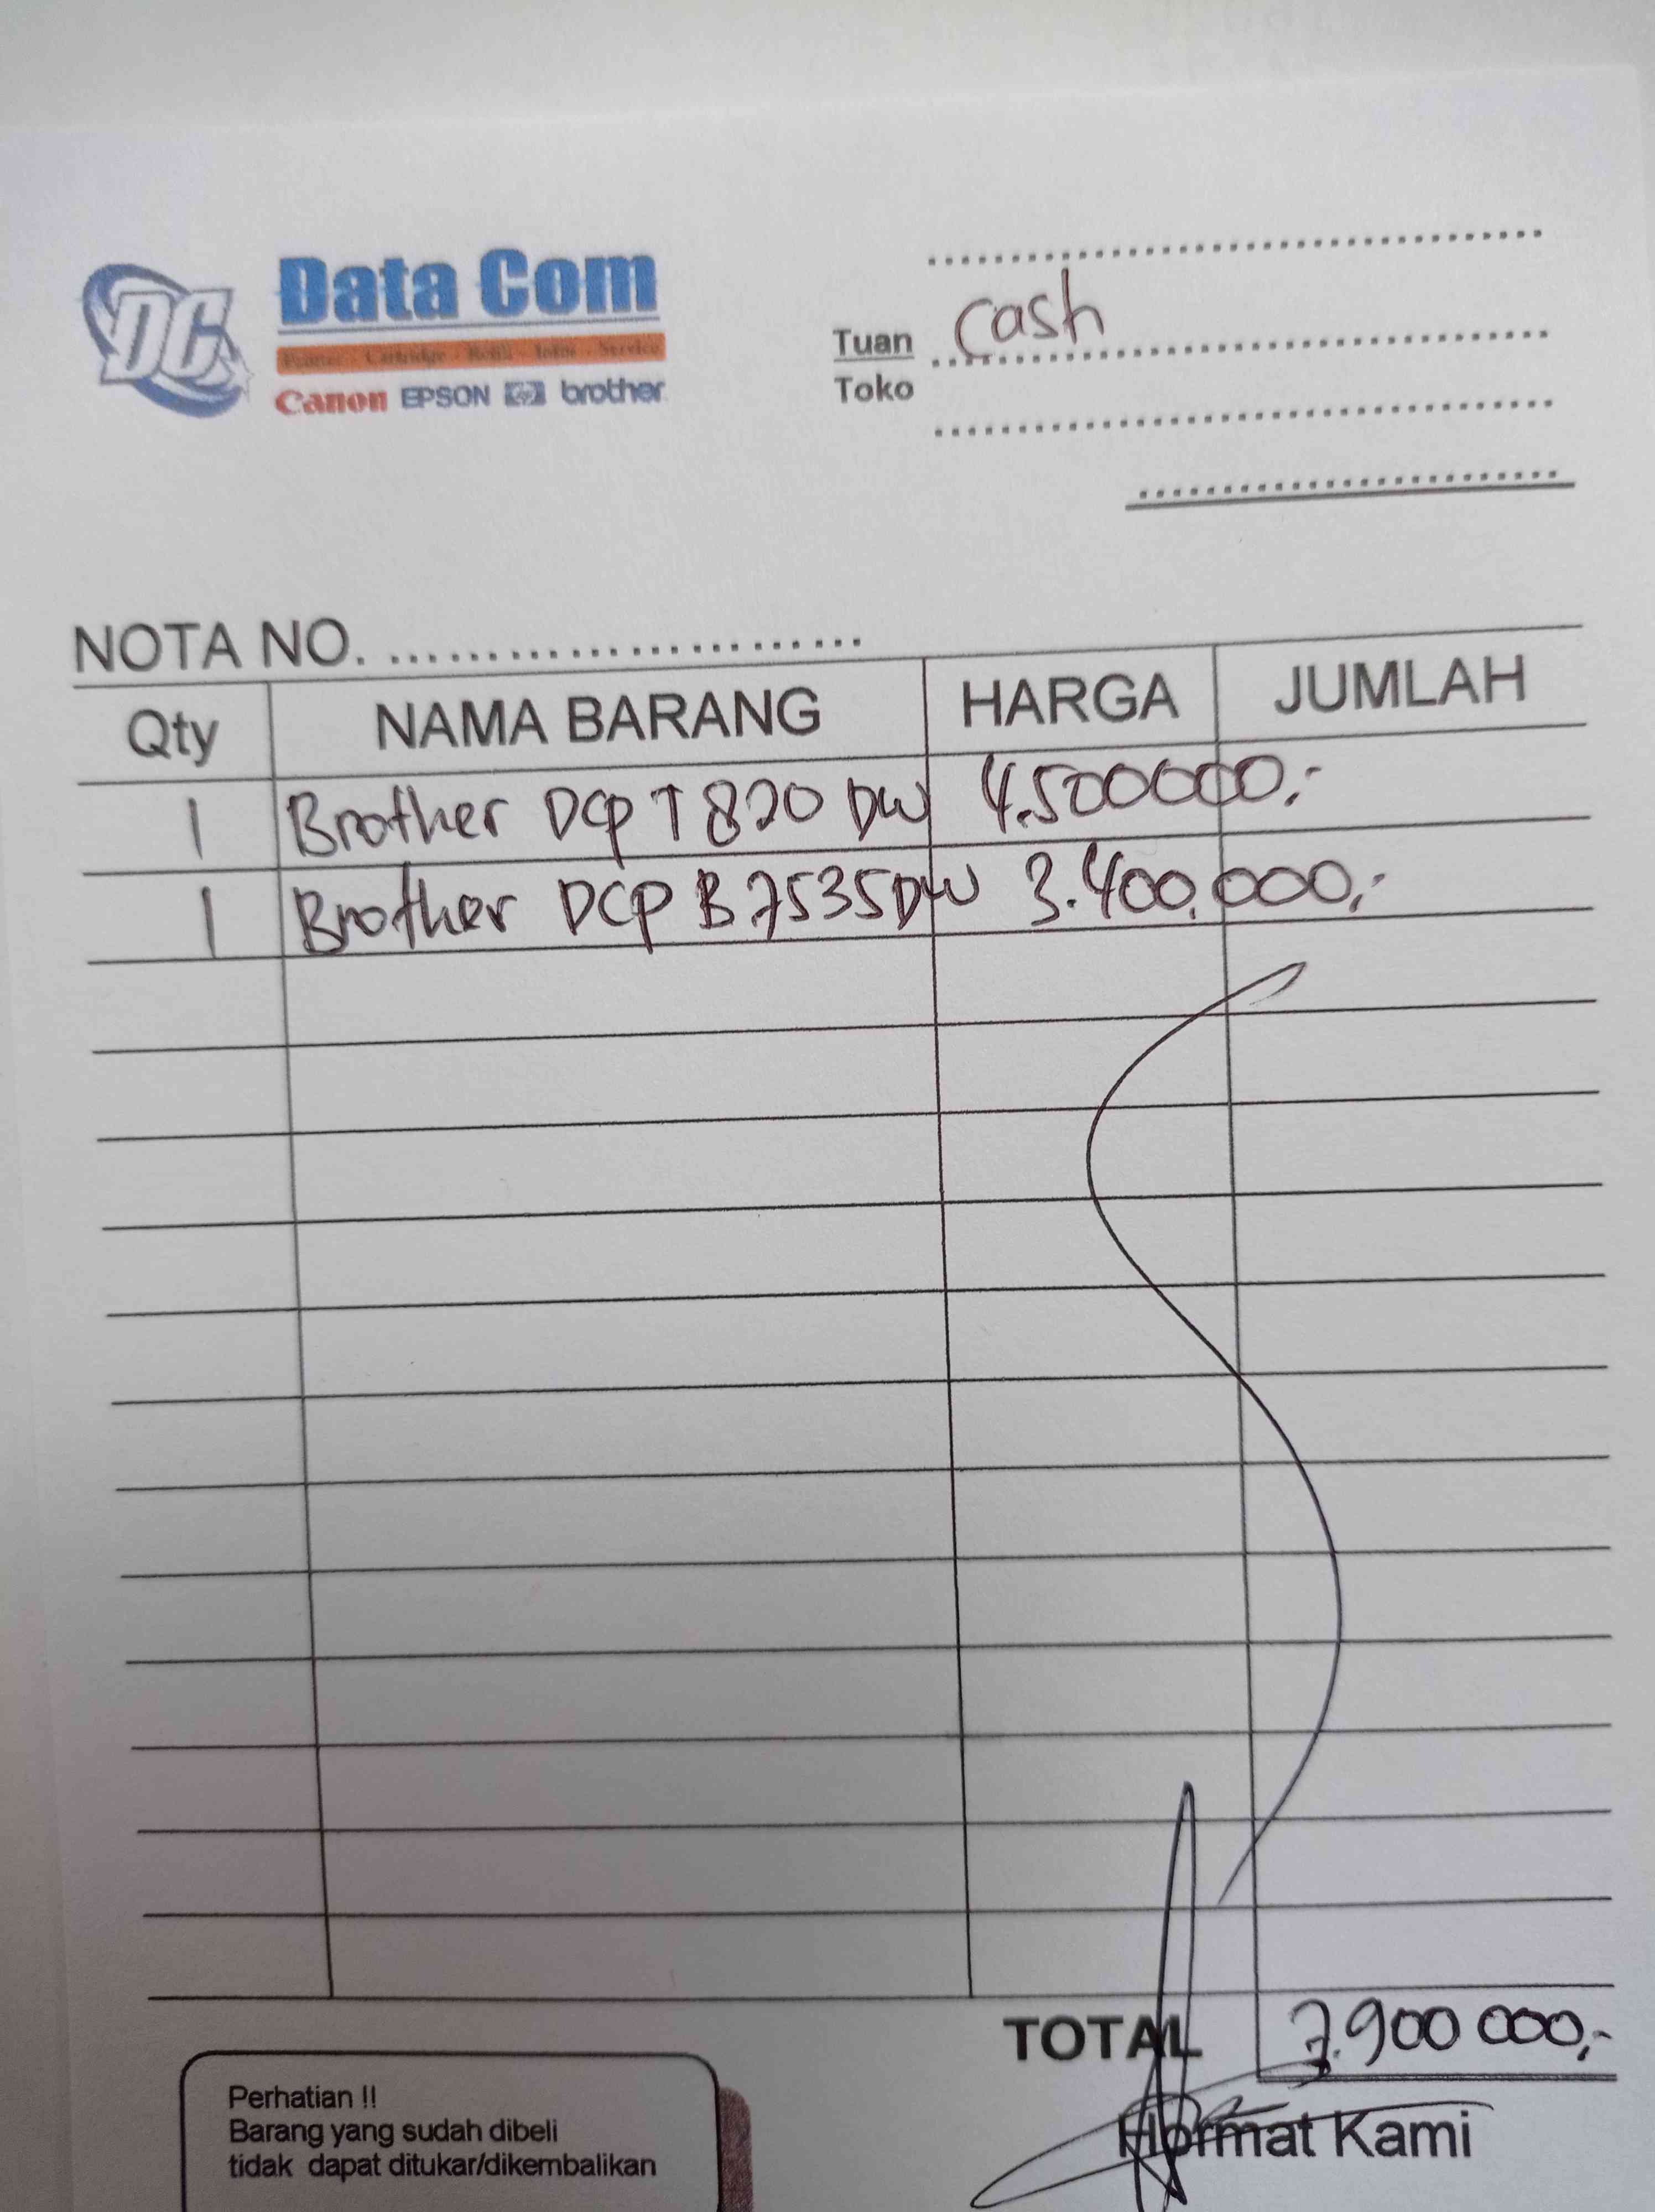 DC
Data Com
Printer - Cartridge - Refill - Infus - Service
Canon EPSON hp brother
Tuan Cash
Toko
NOTA NO. ........................
Qty NAMA BARANG HARGA JUMLAH
1 Brother DCP T820 DW 4.500000,-
1 Brother DCP B7535DW 3.400.000,-
TOTAL 7.900 000,-
Hormat Kami
Perhatian !!
Barang yang sudah dibeli
tidak dapat ditukar/dikembalikan